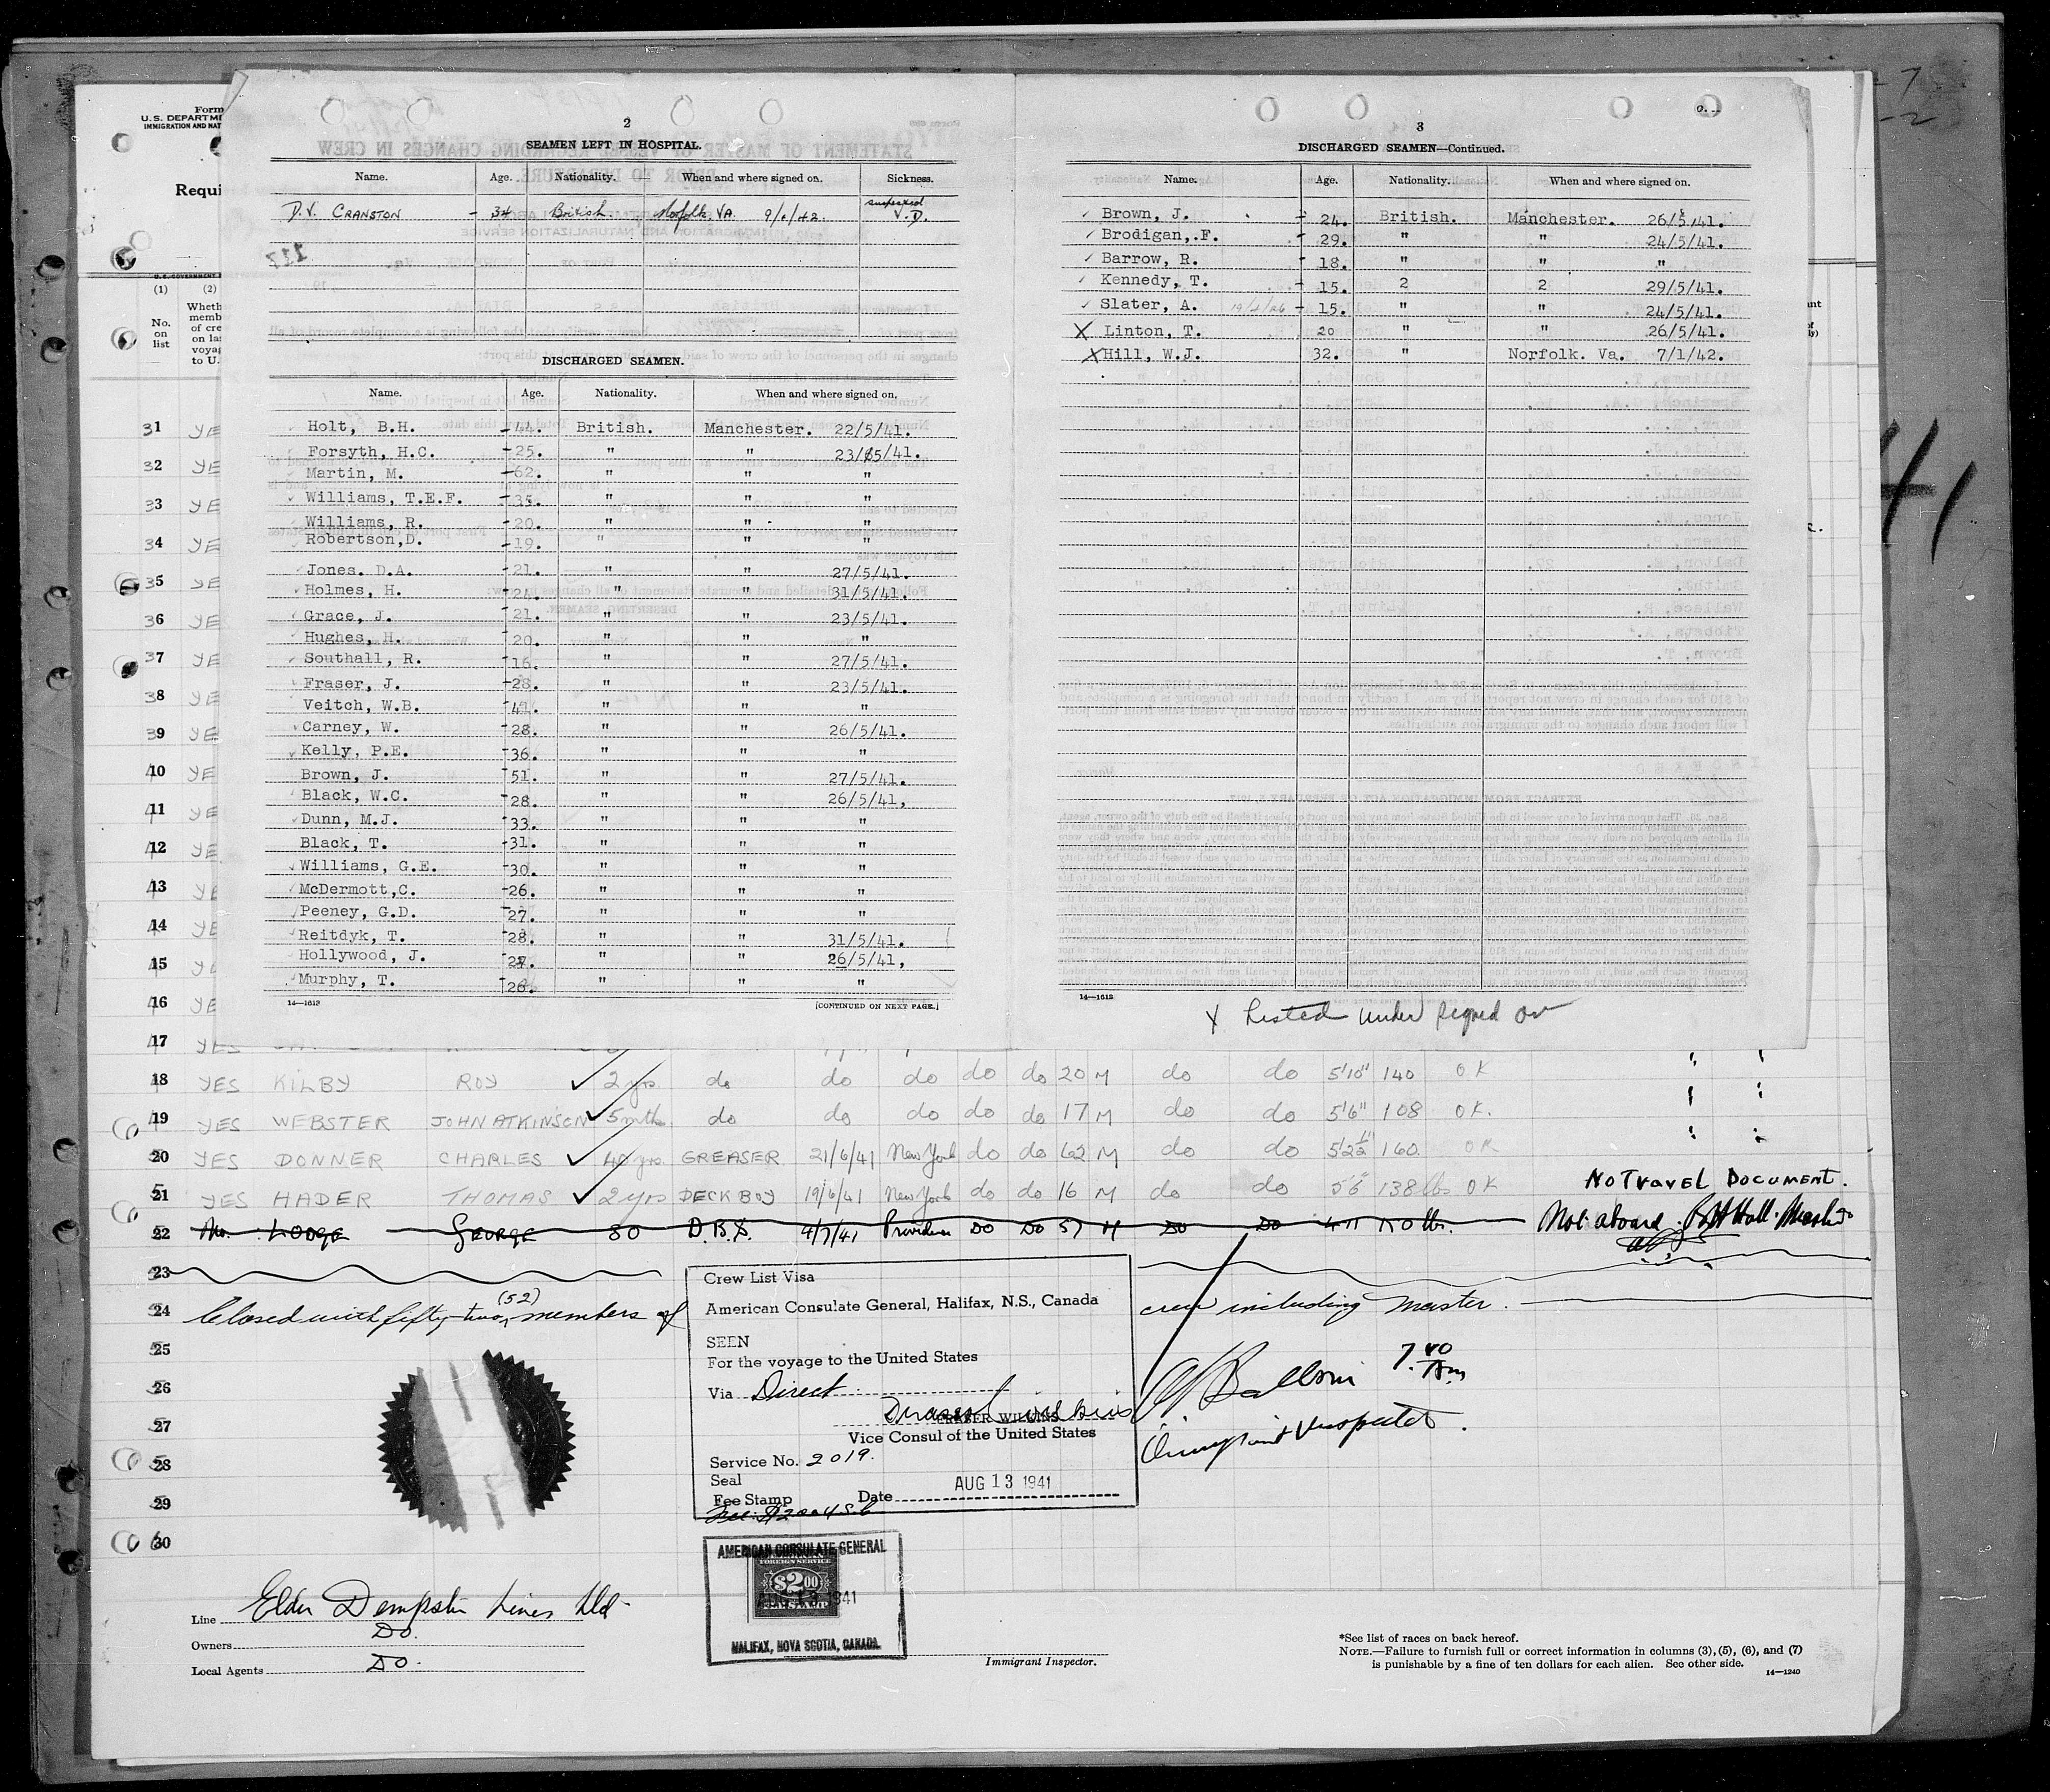 Form
U.S. DEPARTME
IMMIGRATION AND NAT
Requi
U.S. GOVERNMENT
(1) (2)
No. on list
Wheth
memb
of cre
on las
voyag
to U.
2
SEAMEN LEFT IN HOSPITAL.
Name. Age. Nationality. When and where signed on. Sickness.
D.V. CRANSTON - 34 British. Norfolk, VA. 9/1/42. suspected V.D.
117
DISCHARGED SEAMEN.
Name. Age. Nationality. When and where signed on.
Holt, B.H. -44. British. Manchester. 22/5/41.
Forsyth, H.C. -25. " " 23/5/41.
Martin, M. -62. " " "
Williams, T.E.F. -35. " " "
Williams, R. -20. " " "
Robertson,D. -19. " " "
Jones. D.A. -21. " " 27/5/41.
Holmes, H. -24. " " 31/5/41.
Grace, J. 21. " " 23/5/41.
Hughes, H. -20. " " "
Southall, R. -16. " " 27/5/41.
Fraser, J. -28. " " 23/5/41.
Veitch, W.B. " " "
Carney, W. -28. " " 26/5/41.
Kelly, P.E. -36. " " "
Brown, J. 51. " " 27/5/41.
Black, W.C. -28. " " 26/5/41,
Dunn, M.J. -33. " " "
Black, T. -31. " " "
Williams, G.E. -30. " " "
McDermott,C. -26. " " "
Peeney, G.D. -27. " " "
Reitdyk, T. -28. " " 31/5/41.
Hollywood, J. " " 26/5/41,
Murphy, T. " " "
14—1612 [CONTINUED ON NEXT PAGE.]
3
DISCHARGED SEAMEN—Continued.
Name. Age. Nationality. When and where signed on.
Brown, J. - 24. British. Manchester. 26/5/41.
Brodigan,.F. - 29. " " 24/5/41.
Barrow, R. - 18. " " "
Kennedy, T. - 15. 2 2 29/5/41.
Slater, A. 19/4/26 - 15. " " 24/5/41.
X Linton, T. 20 " " 26/5/41.
X Hill, W.J. 32. " Norfolk. Va. 7/1/42.
14—1612
X Listed under signed on
41
31 YE
32 YE
33 YE
34 YE
35 YE
36 YE
37 YE
38 YE
39 YE
40 YE
41 YE
42 YE
43 YE
44 YE
45 YE
46 YE
47 YES
48 YES KILBY ROY ✓ 2 yrs. do do do do do 20 M do do 5'10" 140 OK
49 YES WEBSTER JOHN ATKINSON ✓ 5 mths do do do do do 17 M do do 5'6" 108 OK.
50 YES DONNER CHARLES ✓ 40 yrs. GREASER 21/6/41 New York do do 62 M do do 5'2½" 160 OK
51 YES HADER THOMAS ✓ 2 yrs DECK BOY 19/6/41 New York do do 16 M do do 5'6" 138 lbs OK NO TRAVEL DOCUMENT.
52 LODGE GEORGE 30 D.B.S. 9/7/41 Providence DO DO 57 M DO DO 4'11 150 lbs. Not aboard. Hall. Master
53
54 Closed with fifty-two (52) members of crew including Master.
55
56
57
58
59
60
Crew List Visa
American Consulate General, Halifax, N.S., Canada
SEEN
For the voyage to the United States
Via Direct
FRASER WILKINS
Vice Consul of the United States
Service No. 2019.
Seal
AUG 13 1941
Fee Stamp Date
7.40 Am
Immigrant Inspector.
AMERICAN CONSULATE GENERAL
FOREIGN SERVICE
$2.00
AUG 13 1941
FEE STAMP
HALIFAX, NOVA SCOTIA, CANADA.
Line Elder Dempster Lines Ltd.
Owners DO.
Local Agents DO.
Immigrant Inspector.
*See list of races on back hereof.
NOTE.—Failure to furnish full or correct information in columns (3), (5), (6), and (7)
is punishable by a fine of ten dollars for each alien. See other side.
14—1240